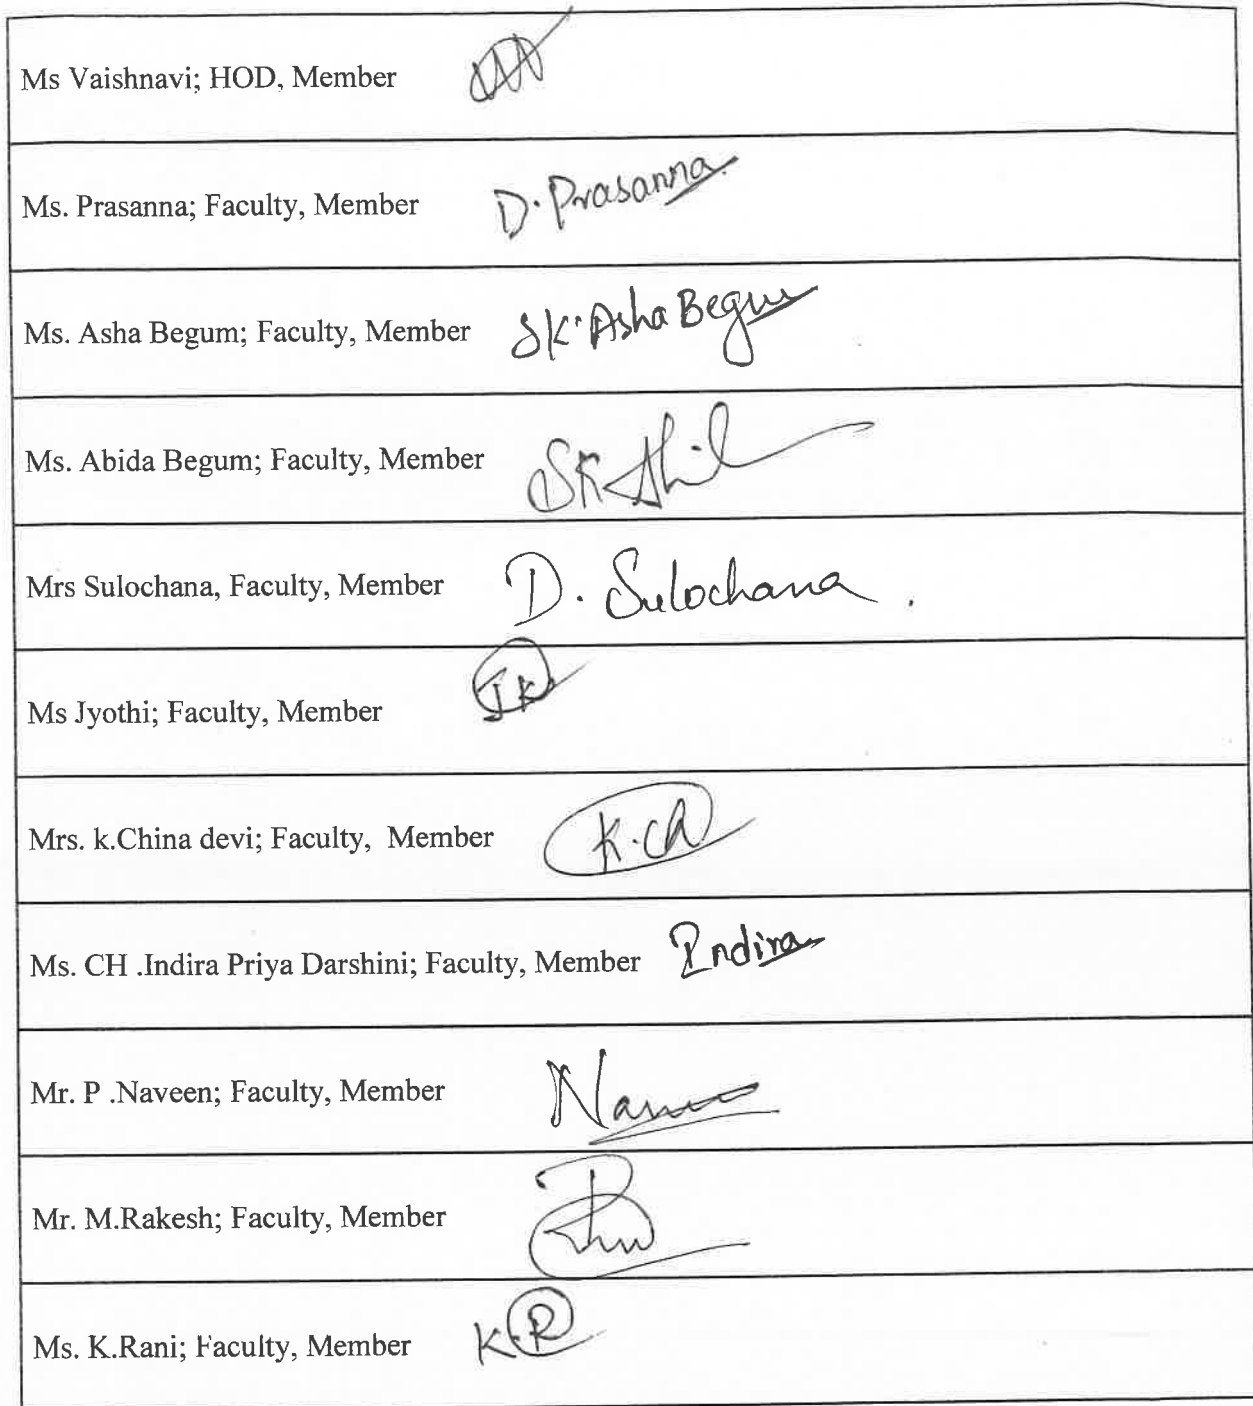 Ms Vaishnavi; HOD, Member
Ms. Prasanna; Faculty, Member D. Prasanna
Ms. Asha Begum; Faculty, Member SK. Asha Begum
Ms. Abida Begum; Faculty, Member SK
Mrs Sulochana, Faculty, Member D. Sulochana.
Ms Jyothi; Faculty, Member JK
Mrs. k.China devi; Faculty, Member K.Ch
Ms. CH .Indira Priya Darshini; Faculty, Member Indira
Mr. P .Naveen; Faculty, Member
Mr. M.Rakesh; Faculty, Member
Ms. K.Rani; Faculty, Member K.R